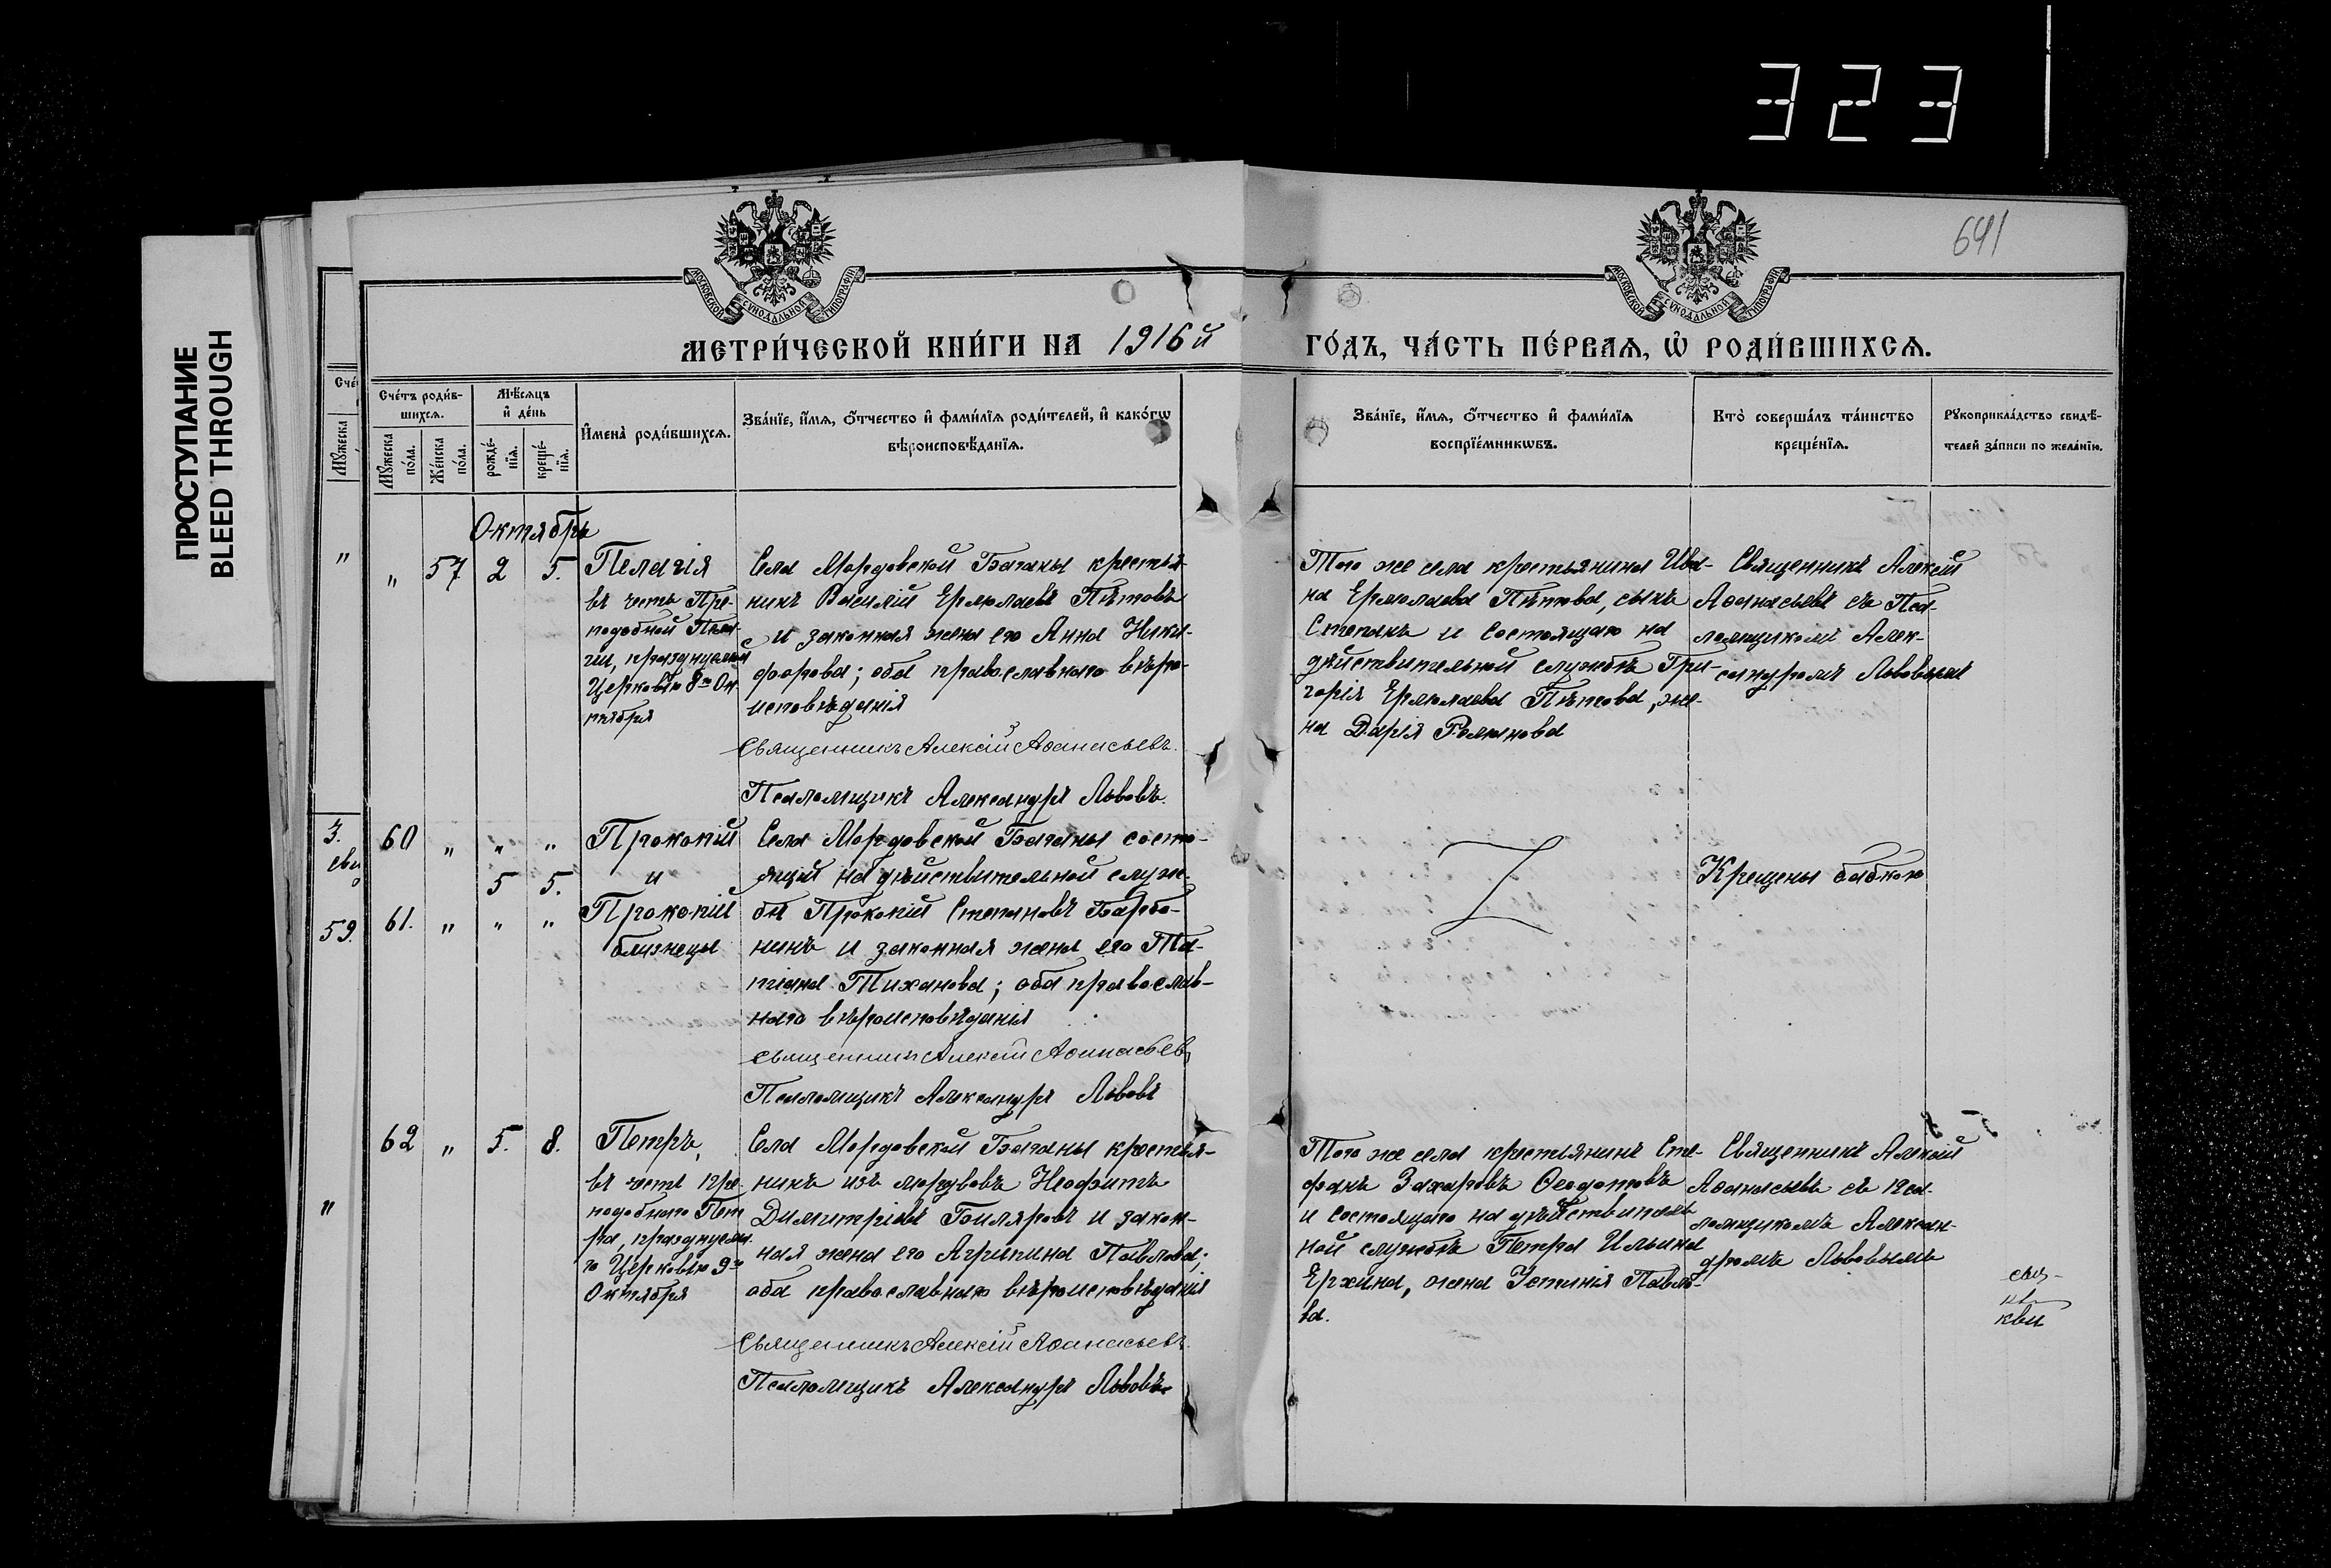 323
641
ПРОСТУПАНИЕ
BLEED THROUGH
МОСКОВСКОЙ СѴНОДАЛЬНОЙ ТИПОГРАФІИ
МОСКОВСКОЙ СѴНОДАЛЬНОЙ ТИПОГРАФІИ
МЕТРИ́ЧЕСКОЙ КНИ́ГИ НА 1916й ГО́ДЪ, ЧА́СТЬ ПЕ́РВАЯ, Ѡ РОДИ́ВШИХСЯ.
Сче́тъ роди́в-
шихся.
Мꙋжеска по́ла.
Же́нска по́ла.
Мѣ́сяцъ
и҆ де́нь
рожде́-
нїя.
креще́-
нїя.
И҆мена̀ роди́вшихся.
Зва́нїе, и҆́мя, ѻ҆́тчество и҆ фами́лїя роди́телей, и҆ како́гѡ
вѣроисповѣ́данїя.
Зва́нїе, и҆́мя, ѻ҆́тчество и҆ фами́лїя
воспрїе́мникѡвъ.
Кто̀ соверша́лъ та́инство
креще́нїя.
Рꙋкоприкла́дство свидѣ́-
телей за́писи по жела́нїю.
Октябрь
" 57 2 5.
Пелагія
въ честь Пре-
подобной Пела-
гіи, празднуемой
Церковью 8го Ок-
тября
Села Мордовской Баганы крестья-
нинъ Василій Ермолаевъ Пѣтовъ
и законная жена его Анна Ники-
форова; оба православнаго вѣро-
исповѣданія
Священникъ Алексій Аѳанасьевъ.
Псаломщикъ Александръ Львовъ.
Того же села крестьянина Ива-
на Ермолаева Пѣтова, сынъ
Степанъ и состоящаго на
дѣйствительной службѣ Гри-
горія Ермолаева Пѣтова, же-
на Дарія Романова
Священникъ Алексій
Аѳанасьевъ съ Пса-
ломщикомъ Алек-
сандромъ Львовымъ
3.
59.
60 " " "
5 5.
61. " " "
Прокопій
и
Прокопій
близнецы
Села Мордовской Баганы состо-
ящій на дѣйствительной служ-
бѣ Прокопій Степановъ Барбо-
нинъ и законная жена его Та-
тіана Тиханова; оба православ-
наго вѣроисповѣданія
Священникъ Алексій Аѳанасьевъ
Псаломщикъ Александръ Львовъ
Крещены бабкою
62 " 5. 8.
Петръ,
въ честь пре-
подобнаго Пет-
ра, празднуема-
го Церковью 9го
Октября
Села Мордовской Баганы крестья-
нинъ изъ мордвовъ Неофитъ
Димитріевъ Биляровъ и закон-
ная жена его Агрипина Павлова;
оба православнаго вѣроисповѣданія
Священникъ Алексій Аѳанасьевъ.
Псаломщикъ Александръ Львовъ
Того же села крестьянинъ Сте-
фанъ Захаровъ Ѳеодотовъ
и состоящаго на дѣйствитель-
ной службѣ Петра Ильина
Ерхина, жена Устинія Павло-
ва.
Священникъ Алексій
Аѳанасьевъ съ пса-
ломщикомъ Алексан-
дромъ Львовымъ